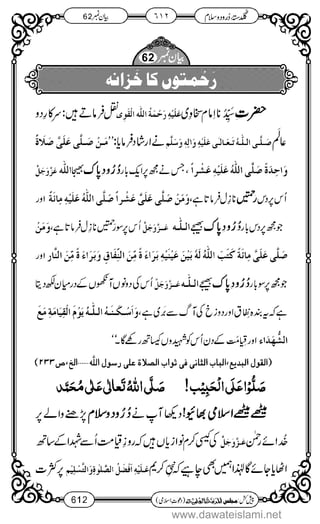 گلدستۂ درود وسلام ٦١٢ بیان نمبر 62
بیان نمبر 62
رَحْمتوں کا خزانہ
حضرت سیِّدُنا امام سخاوی عَلَیْہِ رَحْمَۃُ اللہِ الْقَوِی نقل فرماتے ہیں: سرکارِ دو
عالَم صَلَّی اللہُ تَعَالٰی عَلَیْہِ وَاٰلِہٖ وَسَلَّم نے ارشاد فرمایا: ’’مَنْ صَلّٰی عَلَیَّ صَلَاۃً
وَاحِدَۃً صَلَّی اللہُ عَلَیْہِ عَشْراً، جس نے مجھ پر ایک بار دُرُودِ پاک بھیجا اللہ عَزَّوَجَلَّ
اُس پر دس رحمتیں نازل فرماتا ہے، وَمَنْ صَلّٰی عَلَیَّ عَشْراً صَلَّی اللہُ عَلَیْہِ مِائَۃً اور
جو مجھ پر دس بار دُرُودِ پاک بھیجے اللہ عَزَّوَجَلَّ اُس پر سو رحمتیں نازل فرماتا ہے، وَمَنْ
صَلّٰی عَلَیَّ مِائَۃً کَتَبَ اللہُ لَہٗ بَیْنَ عَیْنَیْہِ بَرَاءَۃً مِّنَ النِّفَاقِ وَبَرَاءَۃً مِّنَ النَّارِ اور
جو مجھ پر سو بار دُرُودِ پاک بھیجے اللہ عَزَّوَجَلَّ اُس کی دونوں آنکھوں کے درمیان لکھ دیتا
ہے کہ یہ بندہ نفاق اور دوزخ کی آگ سے بَری ہے، وَاَسْکَنَہُ اللہُ یَوْمَ الْقِیَامَۃِ مَعَ
الشُّھَدَاءِ اور قیامت کے دن اُس کو شہیدوں کیساتھ رکھے گا۔‘‘
(القول البدیع، الباب الثانی فی ثواب الصلاۃ علی رسول اللہ ۔۔۔ الخ، ص ٢٣٣)
صَلُّوْا عَلَی الْحَبِیْب! صَلَّی اللہُ تَعَالٰی عَلٰی مُحَمَّد
میٹھے میٹھے اسلامی بھائیو! دیکھا آپ نے دُرُود وسلام پڑھنے والے پر
خدائے رحمٰن عَزَّوَجَلَّ کی کیسی کیسی کرم نوازیاں ہیں کہ روزِ قیامت اُسے شہدا کے ساتھ
اٹھایا جائے گا لہٰذا ہمیں بھی چاہیے کہ نبیِّ کریم عَلَیْہِ اَفْضَلُ الصَّلٰوۃِ وَالتَّسْلِیْم پر کثرت
612 پیش کش: مجلس المدینۃ العلمیۃ (دعوتِ اسلامی)
www.dawateislami.net